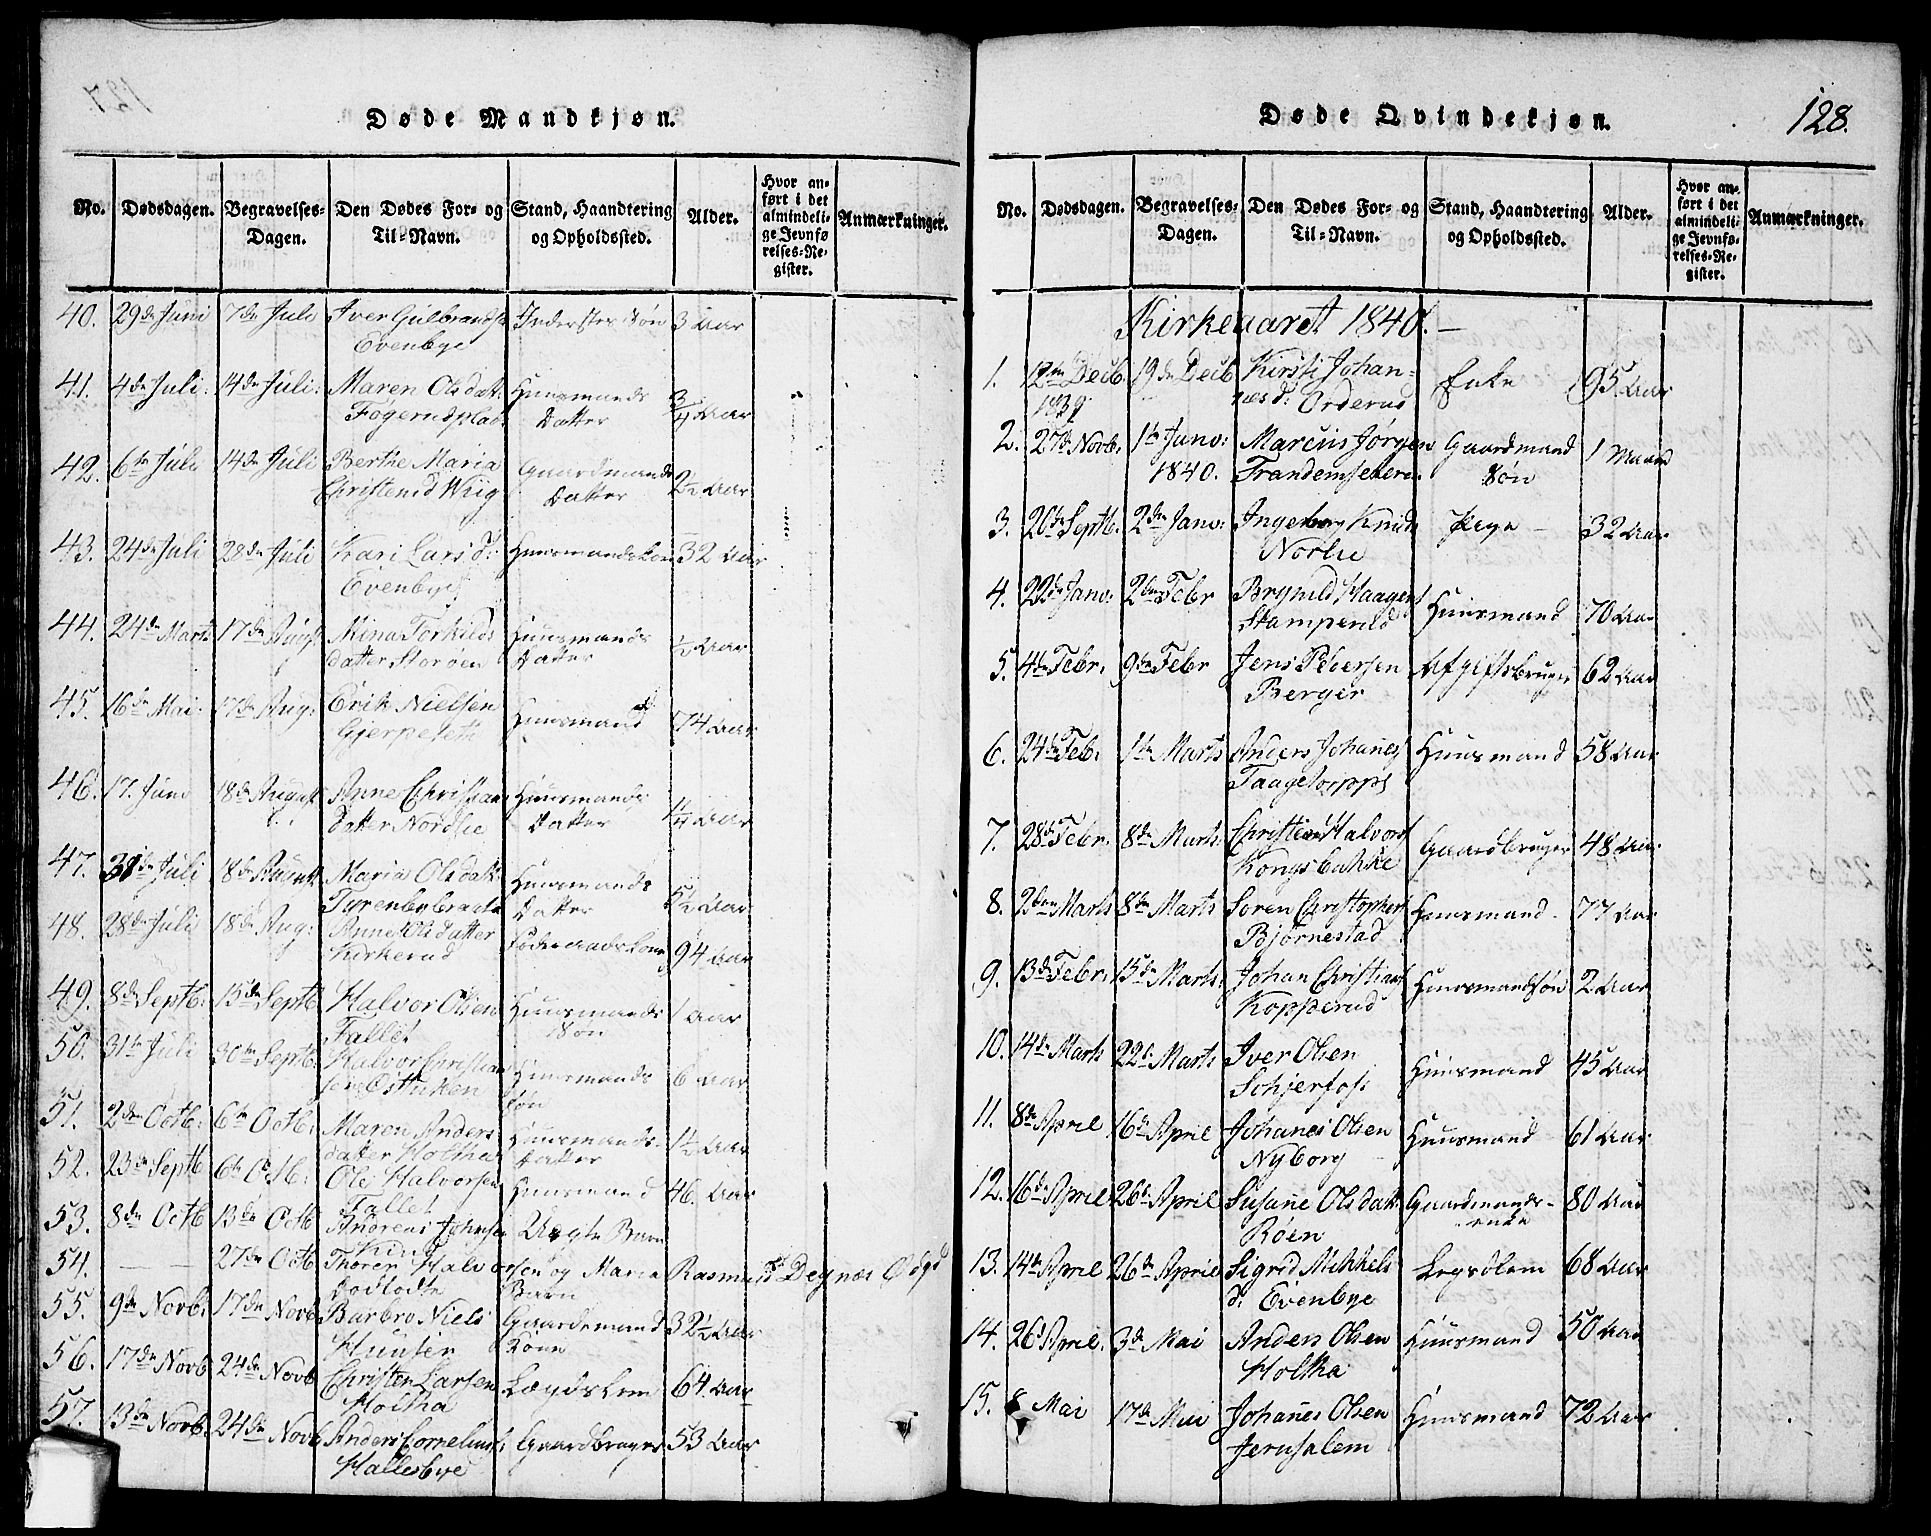 Døde Mandkjøn.
No. Dødsdagen. Begravelses-Dagen. Den Dødes For- og Til-Navn. Stand, Haandtering og Opholdssted. Alder. Hvor anført i det almindelige Jevnførelses-Register. Anmærkninger.
40. 29de Juni 7de Juli Iver Gulbrands. Inderstes Søn 3 Aar
Evenbye
41. 4de Juli. 14de Juli. Maren Olsdatt. Huusmands 3/4 Aar
Fogerudplads. Datter
42. 6te Juli 14de Juli Berthe Maria Gaardmands 2 1/2 Aar
Christensd Wiig Datter
43. 24de Juli 28de Juli Kari Lars d: Huusmandskone 32 Aar
Evenbye
44. 24de Marts 17de Aug Mina Torkilds Huusmands 1/2 Aar
datter Storøen Datter
45. 16de Mai. 17de Aug: Erik Nielsen Huusmand 74 Aar
Gjerpeteie
46. 17. Juni 18de August Anne Christians Huusmands 1 1/4 Aar
datter Nordlie Datter
47. 31de Juli 18de August Maria Olsdatt. Huusmands 5 1/2 Aar
Tyrenbybraate Datter
48. 28de Juli 18de Aug: Anne Olsdatter Føderaadskone 94 Aar
Kirkerud
49. 8de Septb. 15de Septb Halvor Olsen Huusmands 1 Aar
Fallet Søn
50. 31te Juli 20de Septb. Halvor Christian Huusmands 6 Aar
sen Østuken Søn
51. 2den Octb. 6te Octb. Maren Anders Huusmands 1 1/2 Aar
datter Holtha Datter
52. 23de Septb 6te Octb. Ole Halvorsen Huusmand 46. Aar
Fallet
53. 8de Octb 13de Octb Andreas Johnsen Uægte Barn
Kind
54. — — 27de Octb Thoren Halvorsen og Maria Rasmusd Degnæs Ødgd
dødfødte Barn
55. 9de Novb. 17de Novb Barbro Niels Gaardsmand 32 1/2 Aar
Huuser Kone
56. 17de Novb 24de Novb Christen Larsen Lægdslem 64. Aar
Holtha
57. 13de Novb. 24de Novb Anders Cornelius. Gaardbruger 53 Aar
Hallesbye
Døde Qvindekjøn.
128.
No. Dødsdagen. Begravelses-Dagen. Den Dødes For- og Til-Navn. Stand, Haandtering og Opholdssted. Alder. Hvor anført i det almindelige Jevnførelses-Register. Anmærkninger.
Kirkeaaret 1840. —
1. 12te Decb. 19de Decb Kirsti Johan= Enke 95 Aar
1839 nesd: Orderud
2. 27de Novb. 1te Janv: Marcus Jørgen Gaardmand 1 Maaned
1840. Trandemsetere Søn
3. 26de Septb. 2den Janv: Ingeborg Knuds Pige — 32 Aar
Norlie
4. 22de Janv: 2den Febr Brynild Haagens Huusmand 70 Aar
Stamperud
5. 4de Febr. 9de Febr Jens Pedersen Afgiftsbruger 62 Aar
Berger
6. 24de Feb. 1te Marts Anders Johanes Huusmand 58 Aar
Taagetorpps
7. 28de Febr. 8de Marts. Christen Halvors Gaardbruger 48 Aar
Kongsbakke
8. 2den Marts 8de Marts Soren Christophers Huusmand. 77 Aar
Bjørnestad
9. 13de Febr. 15de Marts. Johan Christians Huusmandsøn 2 Aar
Kopperud
10. 14de Marts 22de Marts Iver Olsen Huusmand 45 Aar
Schjerfoss
11. 8de April 16de April Johanes Olsen Huusmand 61 Aar
Nyborg
12. 16de April 26de April Susane Olsdatt. Gaardmands- 80 Aar
Røen enke
13. 14de April 26de April Sigrid Mikkels Legdslem 68 Aar
d: Evenbye
14. 26d April. 3de Mai Anders Olsen Huusmand 50 Aar
Holtha
15. 8 Mai 17de Mai Johanes Olsen Huusmand 72 Aar
Jerusalem